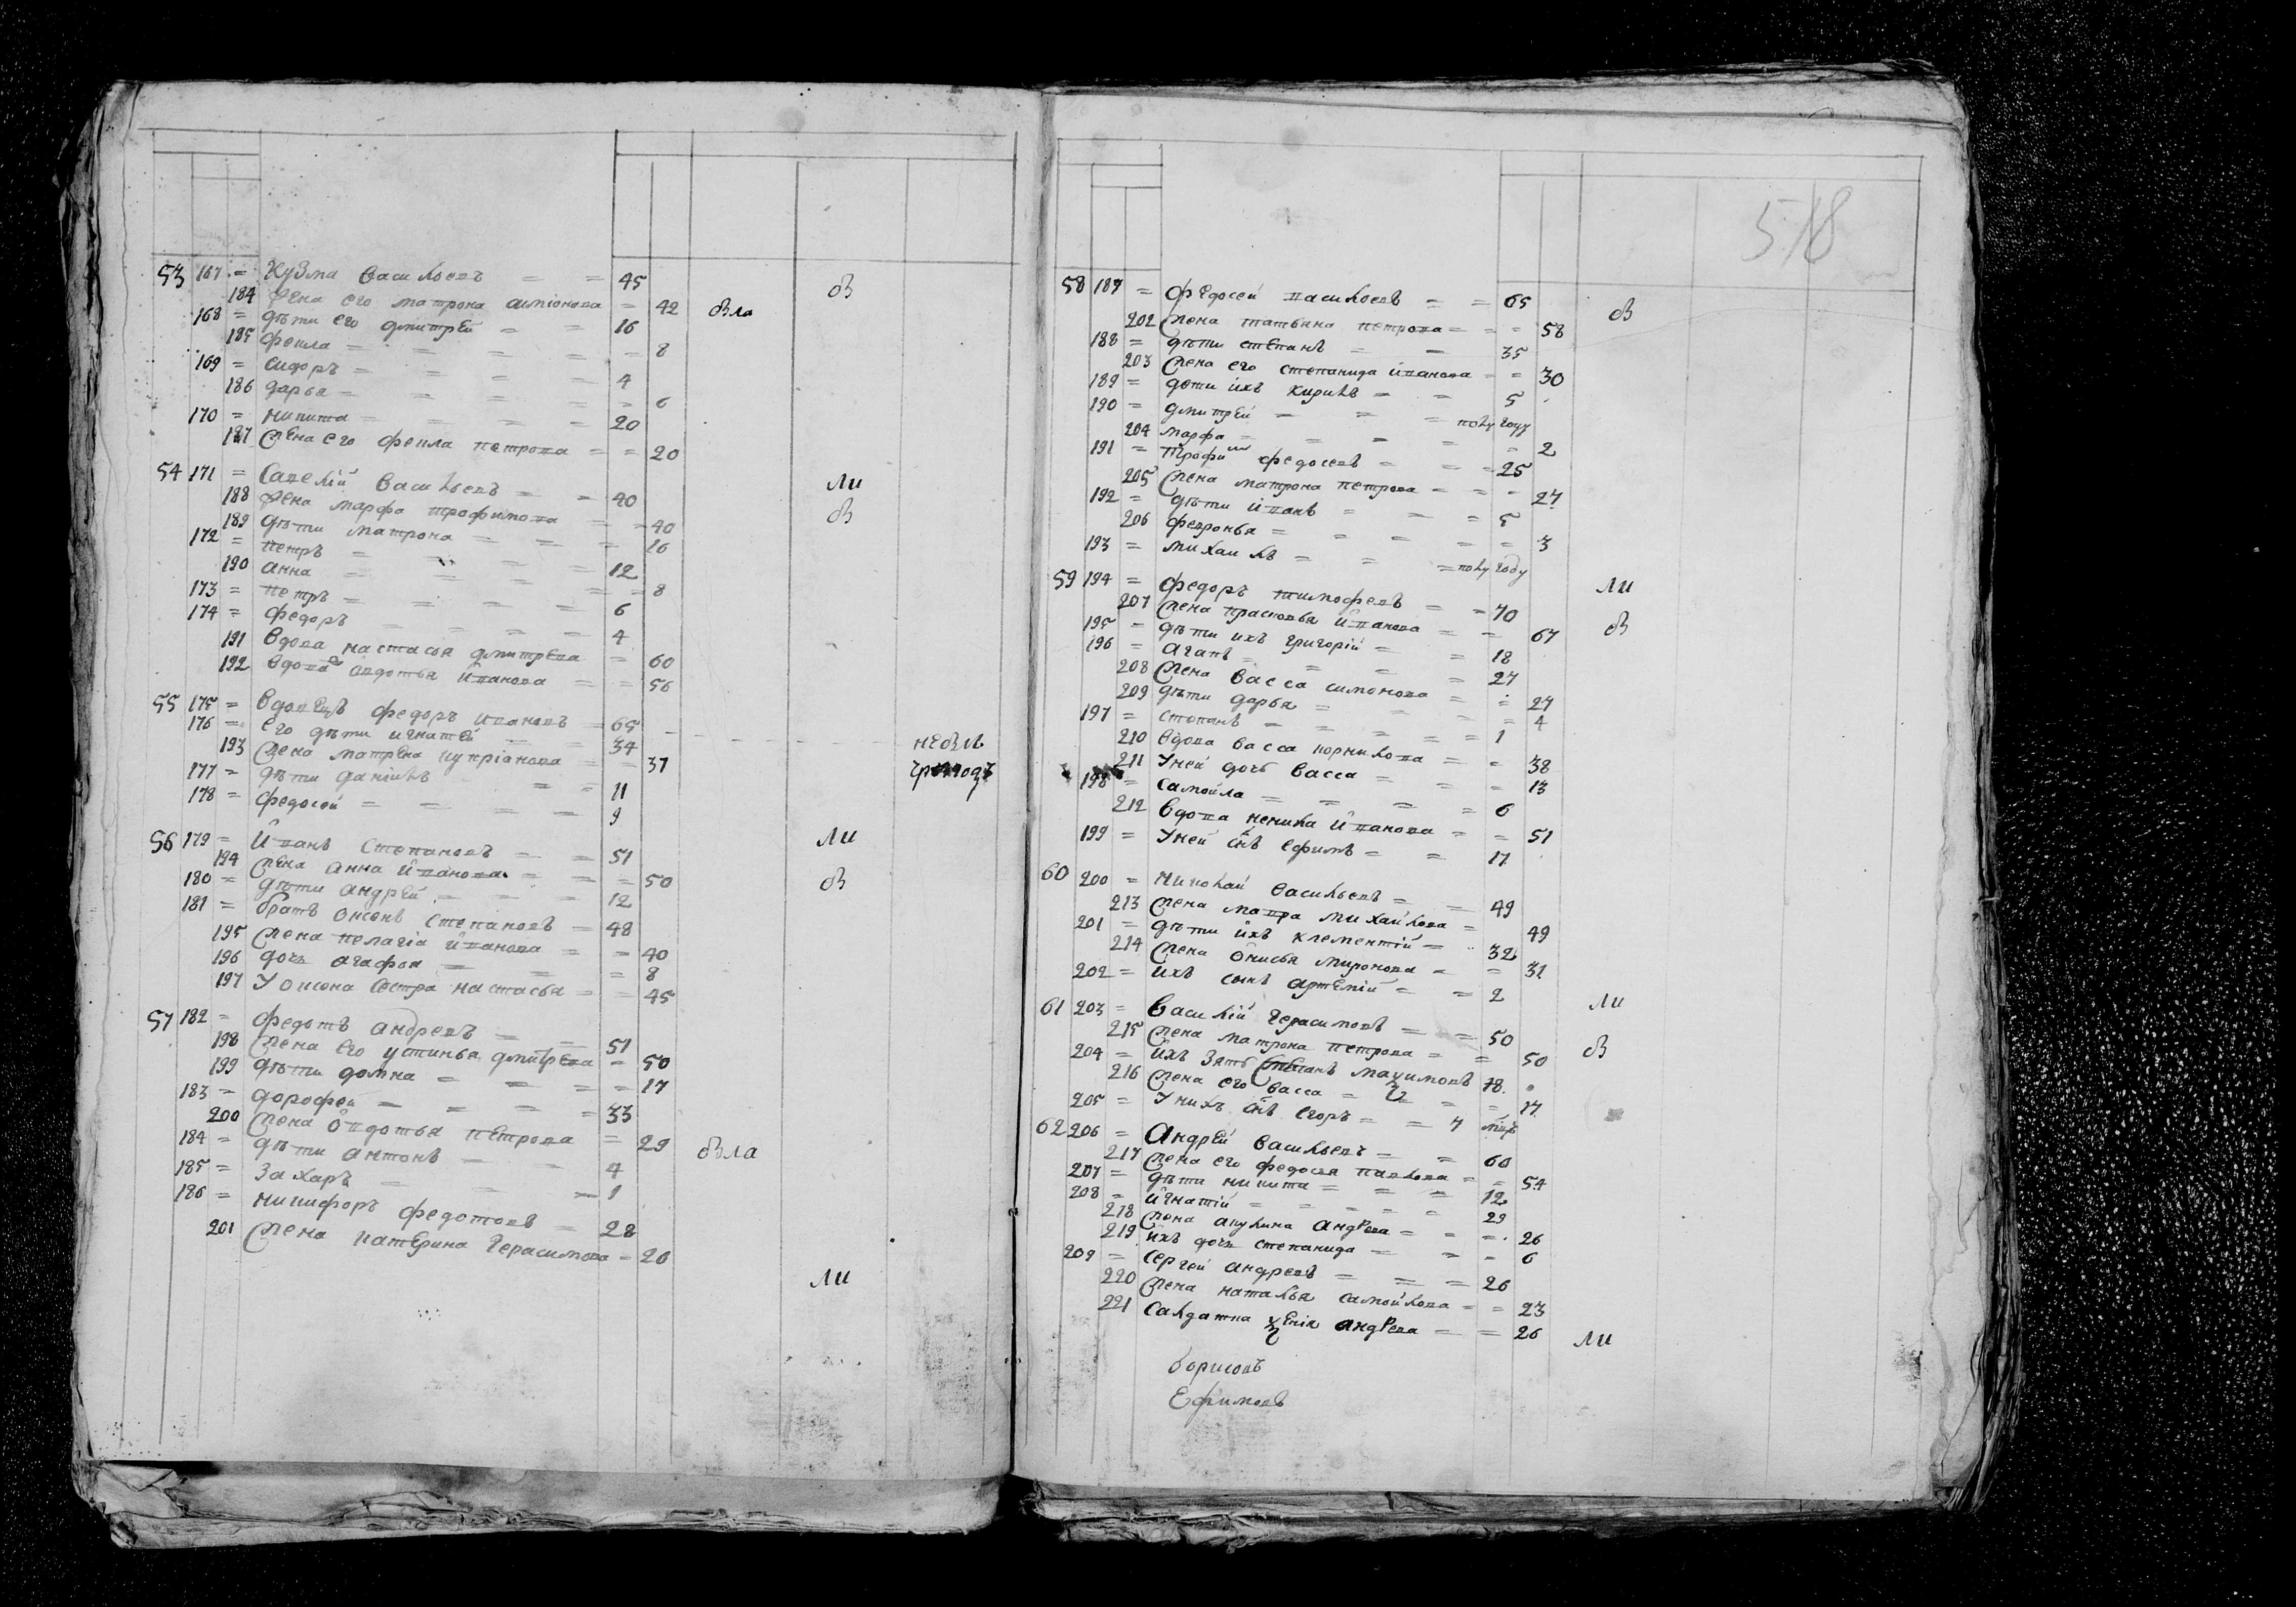 53 167 = Кузма васильевъ = = 45
184 жена его матрона симіонова = 42 была
168 = дѣти его дмитрей = = 16
185 фекла = = = = = 8
169 = сидоръ = = = = 4
186 дарья = = = = = 6
170 = никита = = = = 20
187 жена его фекла петрова = = 20
54 171 = Савелій васильевъ = = 40
188 жена марфа трофимова = = 40
189 дѣти матрона = = = 16
172 = петръ = = = = 12
190 анна = = = = = 8
173 = петръ = = = = 6
174 = федоръ = = = = 4
191 вдова настасья дмитрева = 60
192 вдова авдотья иванова = = 56
55 175 = вдовецъ федоръ ивановъ = 65
176 = его дѣти игнатей = = 34
193 жена матрена купріанова = = 37
177 = дѣти данілъ = = 11
178 = федосей = = = = 9
56 179 = иванъ степановъ = = 51
194 жена анна иванова = = = 50
180 = дѣти андрей = = = 12
181 = братъ степановъ = 48
195 жена пелагіа иванова = = 40
196 дочь агафья = = = 8
197 сестра настасья = = 45
57 182 = федотъ андреевъ = = 51
198 жена его устинья дмитрева = 50
199 дѣти домна = = = = 17
183 = дорофей = = = = 33
200 жена овдотья петрова = 29 была
184 = дѣти антонъ = = 4
185 = захаръ = = = 1
186 = никифоръ федотовъ = 28
201 жена катерина герасимова = 20
ли
58 187 = федосей васильевъ = = 65
202 жена татьяна петрова = = = 58
188 = дѣти степанъ = = 35
203 жена его степанида иванова = = 30
189 = дети ихъ кирилъ = = 5
190 = дмитрей = = = полу году
204 марфа = = = = = 2
191 = трофим федосеевъ = = = 25
205 жена матрона петрова = = = 27
192 = дѣти иванъ = = = 5
206 февронья = = = = = 3
193 = михаилъ = = = полу году
59 194 = федоръ тимофеевъ = = 70
207 жена прасковья иванова = = 67
195 = дѣти ихъ григорій = = 18
196 = = = = = 27
208 жена васса симонова = = 27
209 дѣти дарья = = = = 4
197 = степанъ = = = = 1
210 вдова васса корнилова = = 38
211 уней дочь васса = = = 13
198 = самойла = = = = 6
212 вдова иванова = = 51
199 = уней сынъ ефимъ = = 17
60 200 = николай васильевъ = = 49
213 жена мавра михайлова = 49
201 = дѣти ихъ клементій = 32
214 жена онисья миронова = = 31
202 = ихъ сынъ артемій = = 2
61 203 = василій герасимовъ = = 50
215 жена матрона петрова = = 50
204 = ихъ зять степанъ 18
216 жена его васса = = = 17
205 = унихъ сынъ егоръ = = 7
62 206 = андрей васильевъ = = 60
217 жена его федосья павлова = = 54
207 = дѣти никита = = = 12
208 = игнатій = = = = 29
218 жена акулина андрева = = = 26
219 ихъ дочь степанида = = = 6
209 = сергей андреевъ = = = 26
220 жена наталья самойлова = = 23
221 салдатка андрева = = 26
ли
борисовъ
Ефимовъ
518